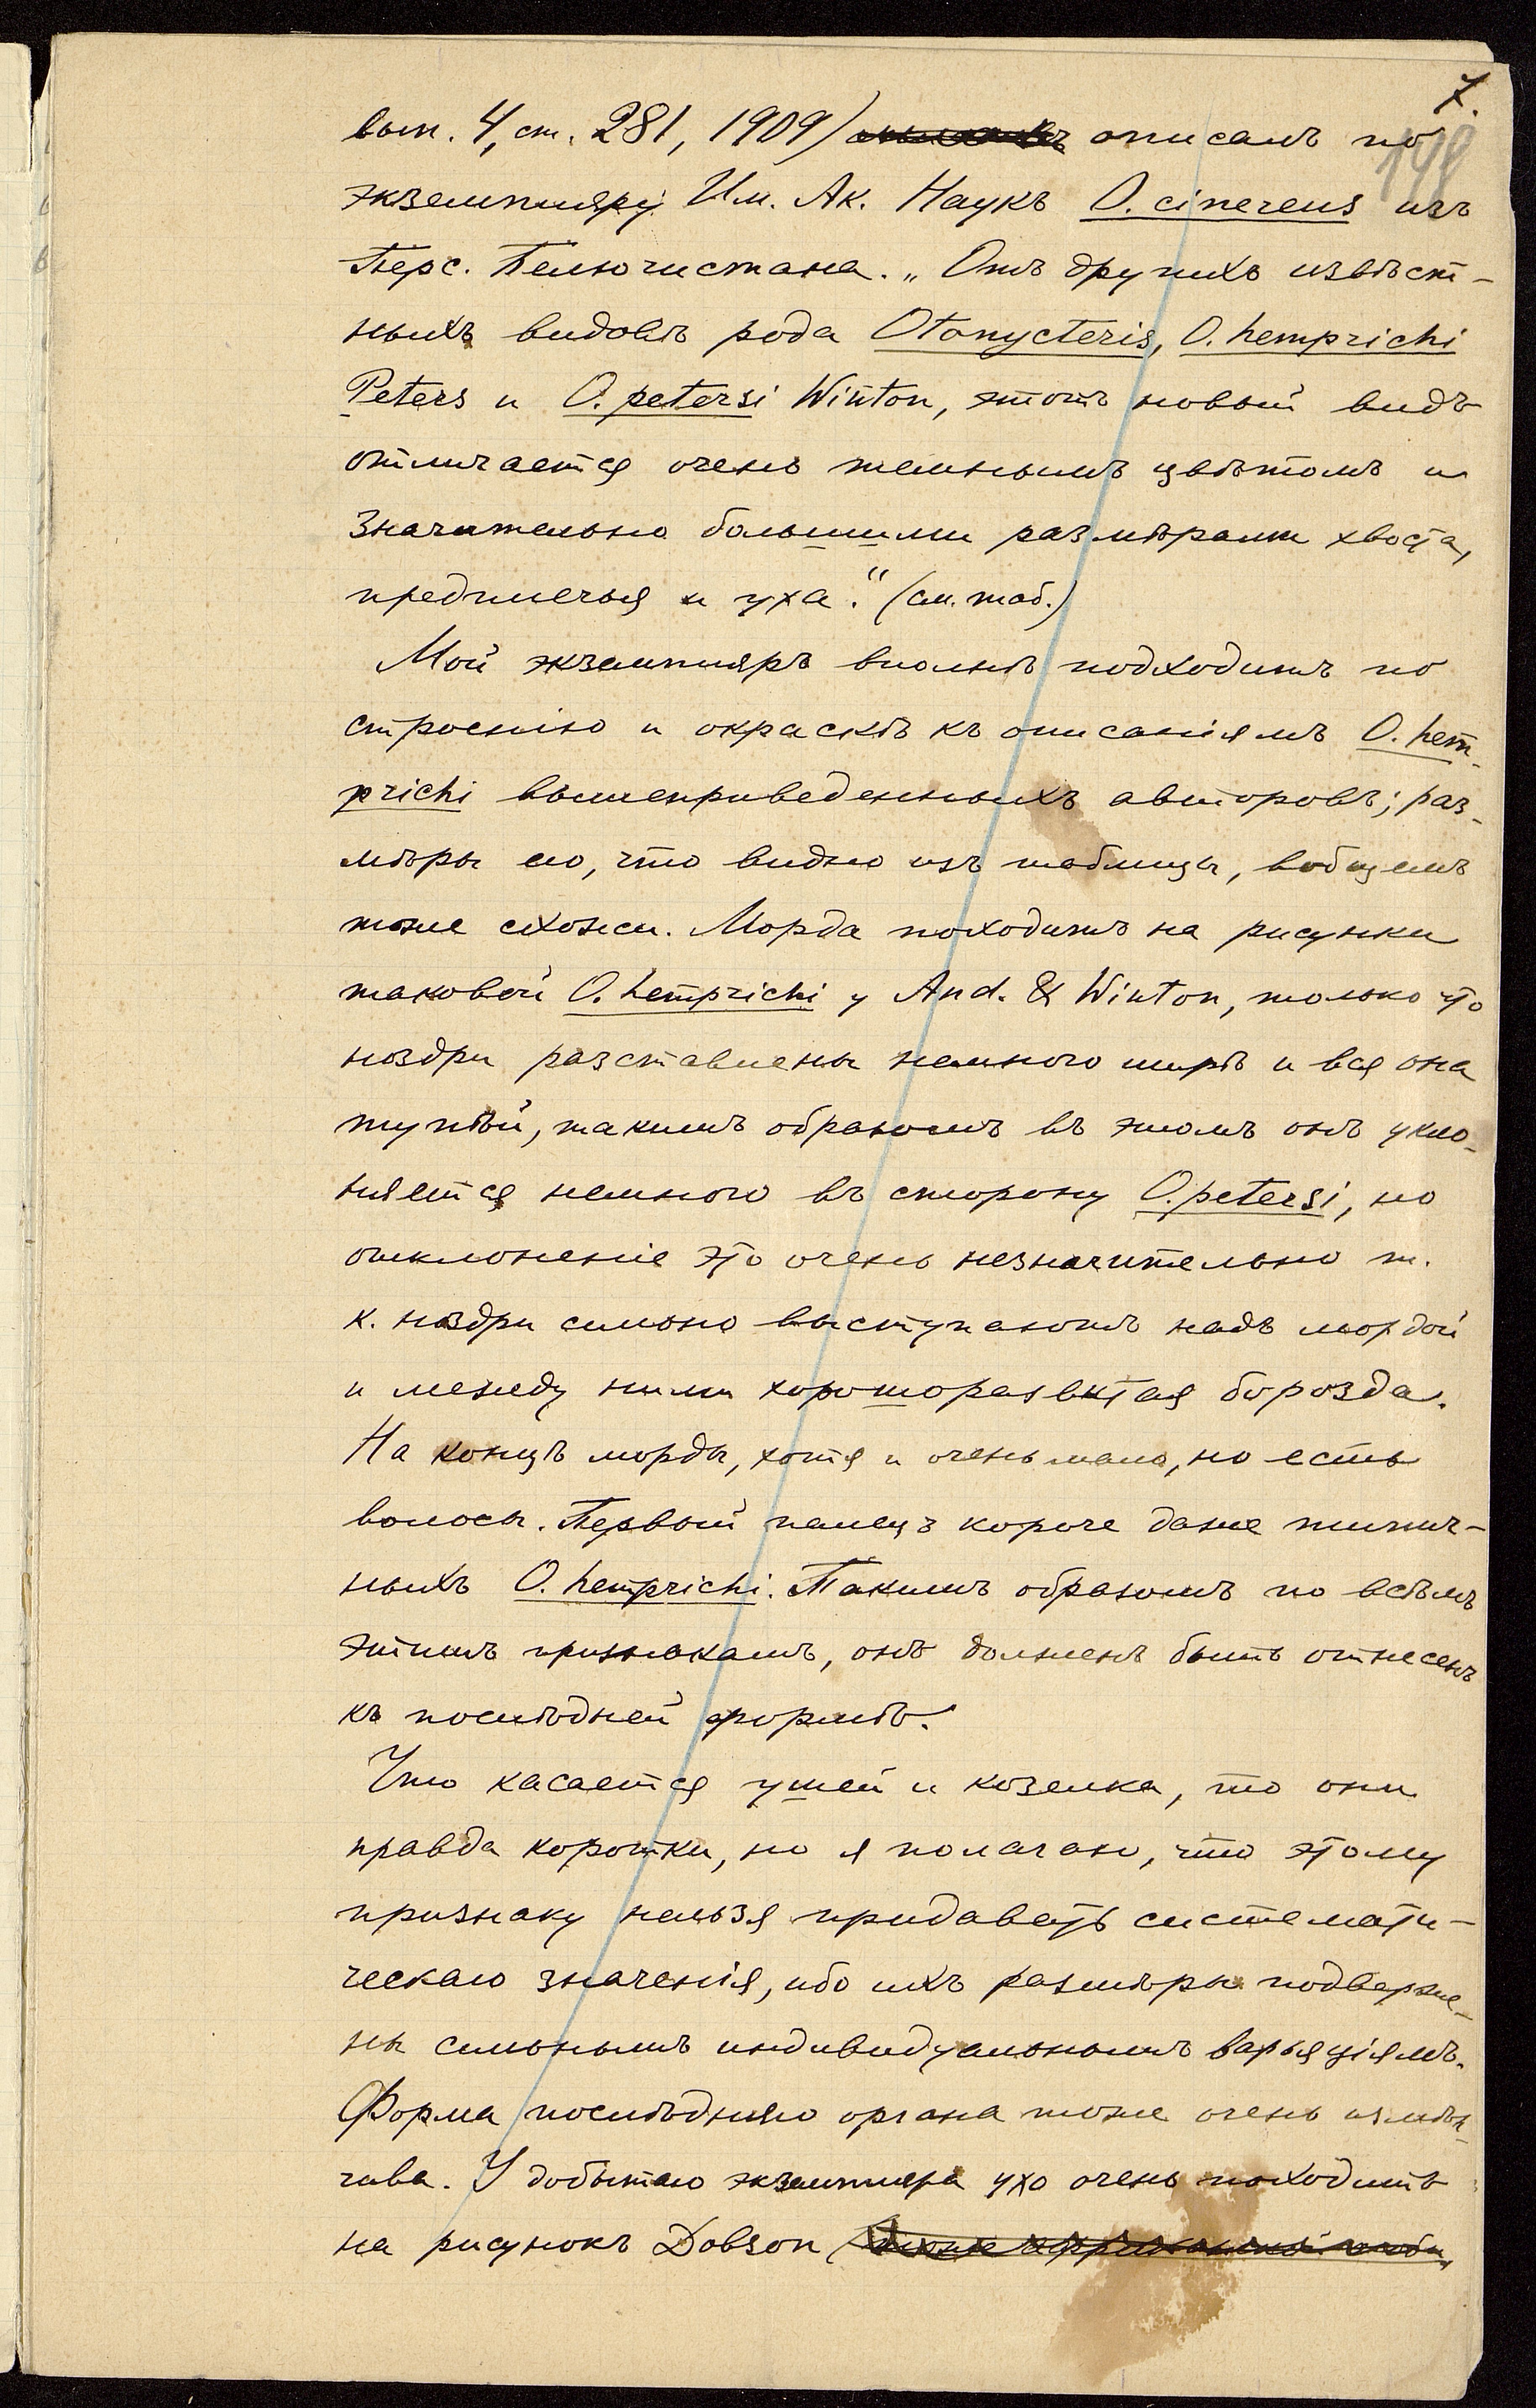 7.
198
вып. 4, ст. 281, 1909) описалъ по
экземпляру Им. Ак. Наукъ O. cinereus изъ
Перс. Белючистана. „Отъ другихъ извѣст-
ныхъ видовъ рода Otonycteris, O. hemprichi
Peters и O. petersi Winton, этотъ новый видъ
отличается очень темнымъ цвѣтомъ и
значительно большими размѣрами хвоста,
предплечья и уха.“ (см. таб.)
Мой экземпляръ вполнѣ подходитъ по
строенію и окраскѣ къ описаніямъ O. hem-
prichi вышеприведенныхъ авторовъ; раз-
мѣры его, что видно изъ таблицы, вобщемъ
тоже схожи. Морда походитъ на рисунки
таковой O. hemprichi у And. & Winton, только что
ноздри разставлены немного ширѣ и вся она
тупѣй, такимъ образомъ въ этомъ онъ укло-
няется немного въ сторону O. petersi, но
отклоненіе это очень незначительно т.
к. ноздри сильно выступаютъ надъ мордой
и между ними хорошоразвитая борозда.
На концѣ морды, хотя и очень мало, но есть
волосы. Первый палецъ короче даже типич-
ныхъ O. hemprichi. Такимъ образомъ по всѣмъ
этимъ признакамъ, онъ долженъ быть отнесенъ
къ послѣдней формѣ.
Что касается ушей и козелка, то они
правда коротки, но я полагаю, что этому
признаку нельзя придавать системати-
ческаго значенія, ибо ихъ размѣры подверже-
ны сильнымъ индивидуальнымъ варьяціямъ.
Форма послѣдняго органа тоже очень измѣн-
чива. У добытаго экземпляра ухо очень походитъ
на рисунокъ Dobson